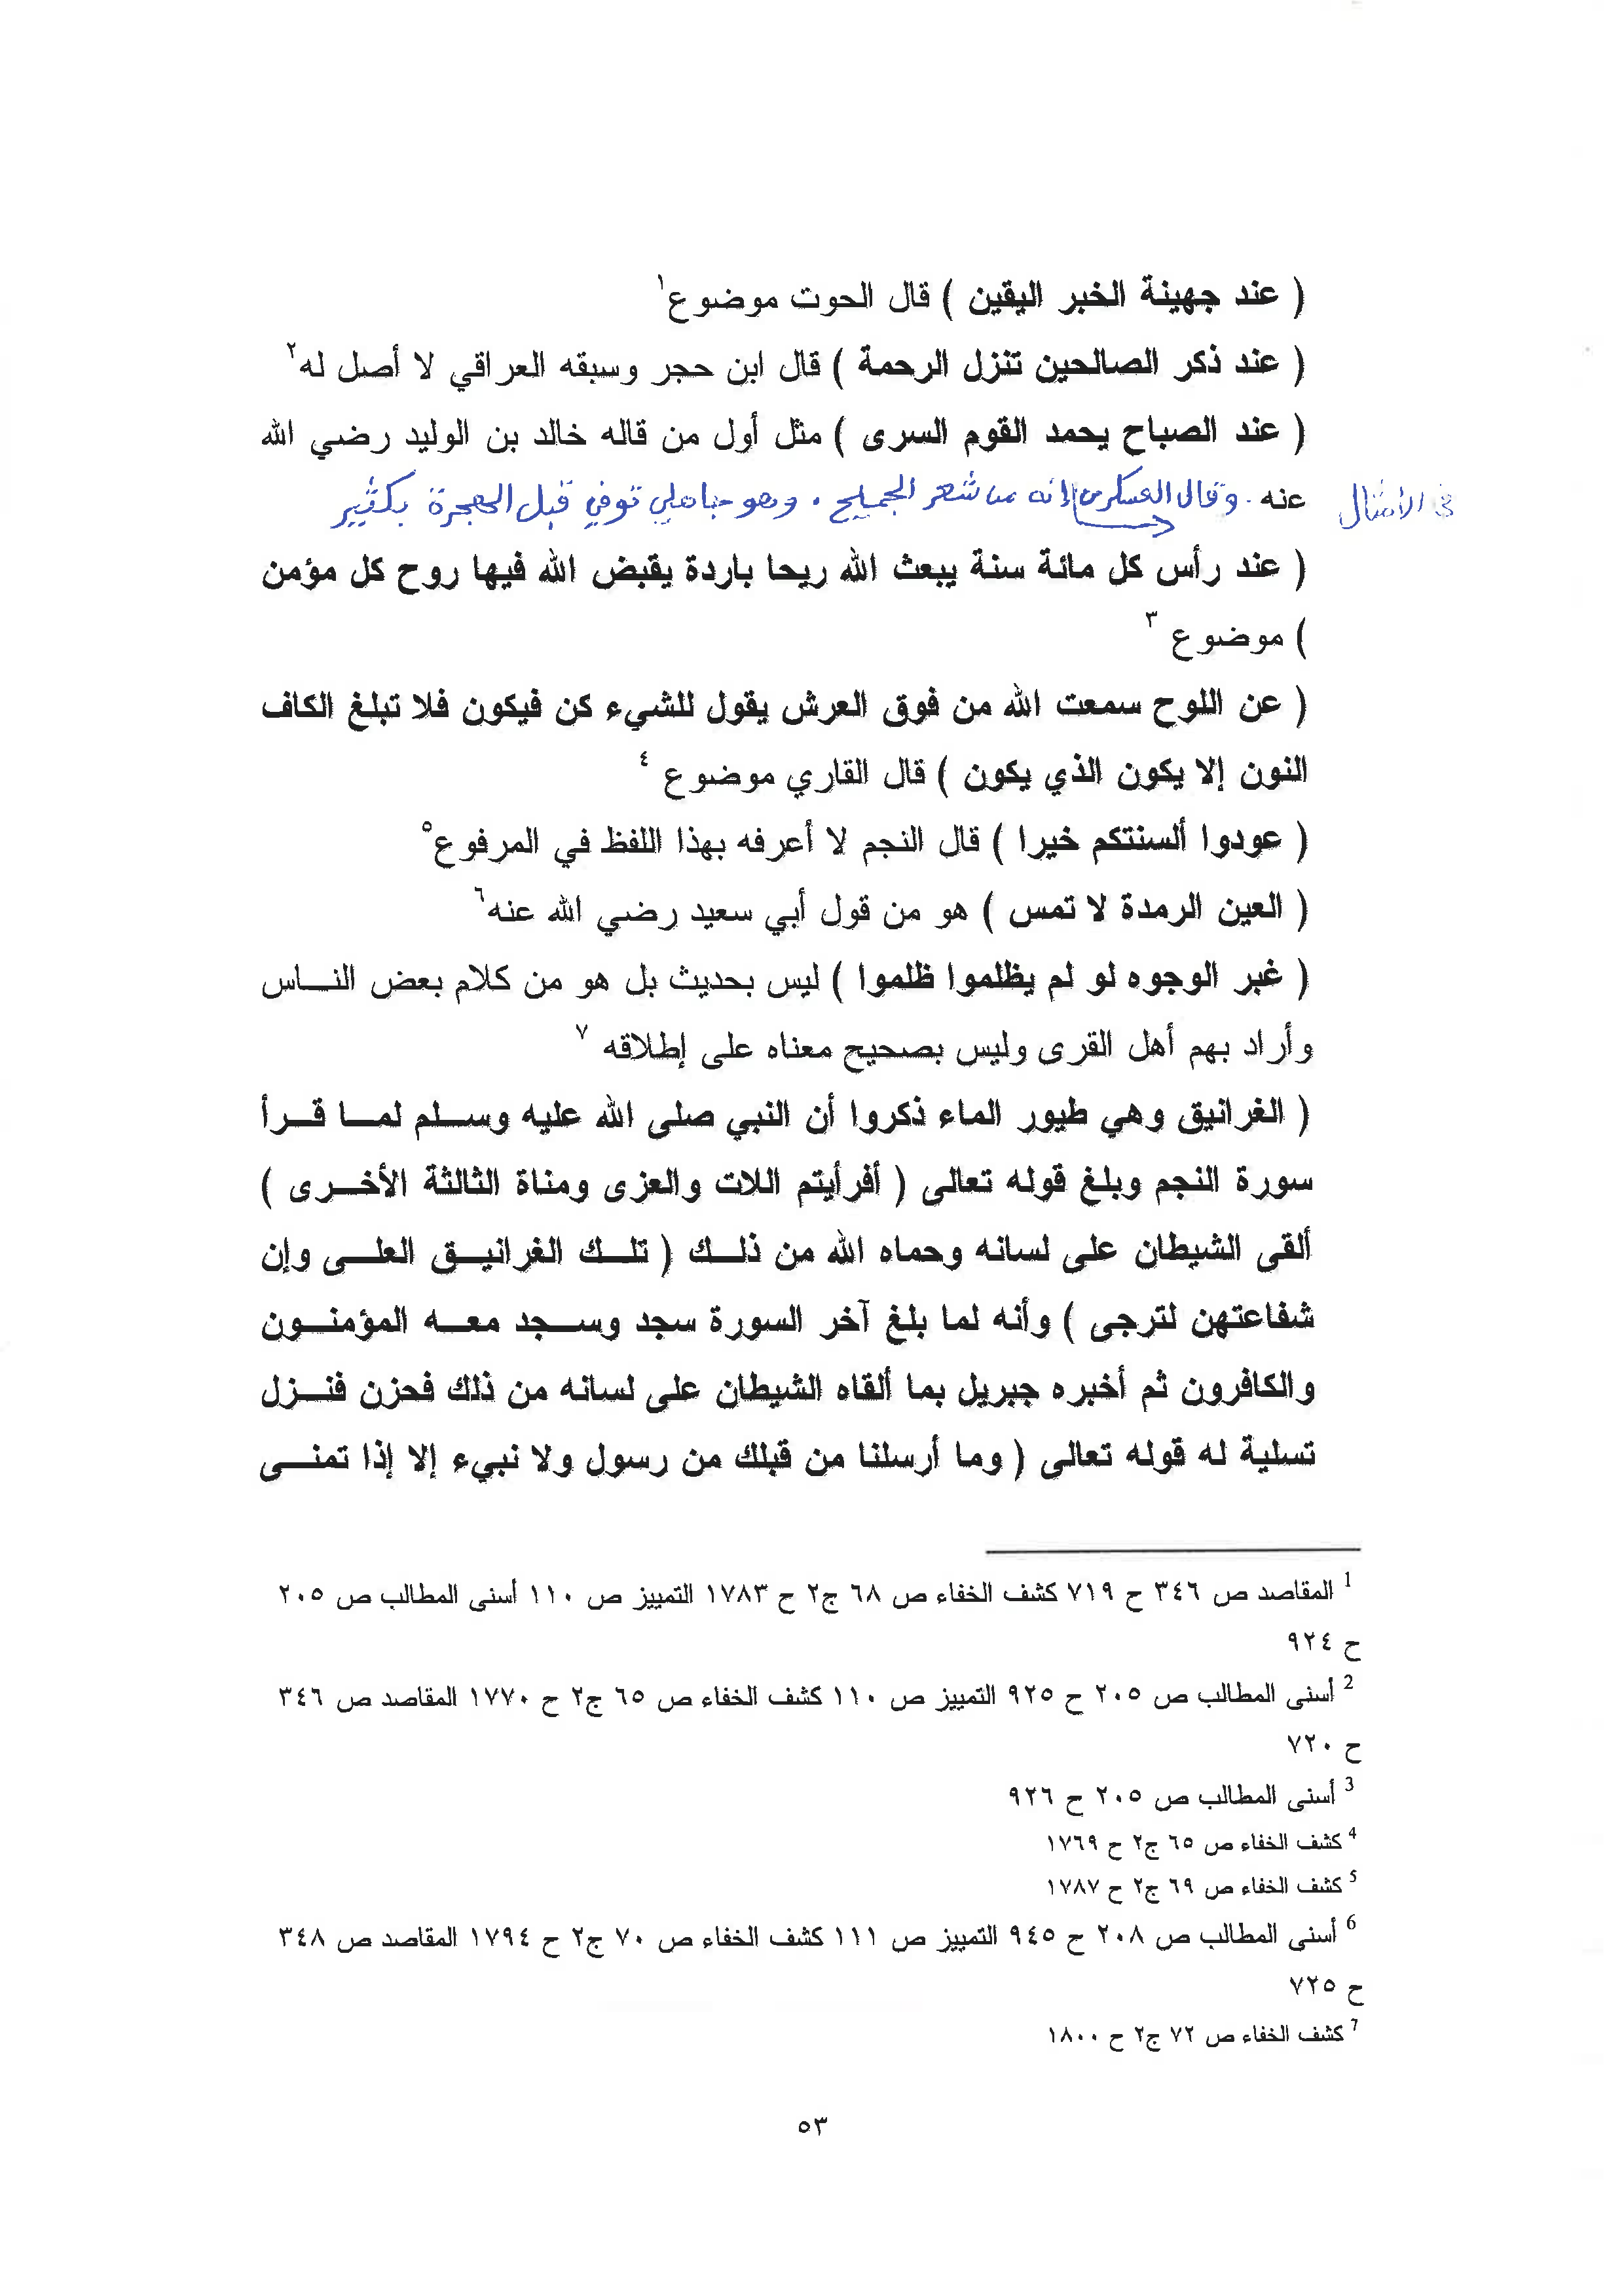 ( عند جهينة الخبر اليقين ) قال الحوت موضوع١
( عند ذكر الصالحين تنزل الرحمة ) قال ابن حجر وسبقه العراقي لا أصل له٢
( عند الصباح يحمد القوم السرى ) مثل أول من قاله خالد بن الوليد رضي الله
عنه . وقال العسكري في الأمثال إنه من شعر الجميح . وهو جاهلي توفي قبل الهجرة بكثير
( عند رأس كل مائة سنة يبعث الله ريحا باردة يقبض الله فيها روح كل مؤمن
) موضوع ٣
( عن اللوح سمعت الله من فوق العرش يقول للشيء كن فيكون فلا تبلغ الكاف
النون إلا يكون الذي يكون ) قال القاري موضوع ٤
( عودوا ألسنتكم خيرا ) قال النجم لا أعرفه بهذا اللفظ في المرفوع٥
( العين الرمدة لا تمس ) هو من قول أبي سعيد رضي الله عنه٦
( غبر الوجوه لو لم يظلموا ظلموا ) ليس بحديث بل هو من كلام بعض الناس
وأراد بهم أهل القرى وليس بصحيح معناه على إطلاقه ٧
( الغرانيق وهي طيور الماء ذكروا أن النبي صلى الله عليه وسلم لما قرأ
سورة النجم وبلغ قوله تعالى ( أفرأيتم اللات والعزى ومناة الثالثة الأخرى )
ألقى الشيطان على لسانه وحماه الله من ذلك ( تلك الغرانيق العلى وإن
شفاعتهن لترجى ) وأنه لما بلغ آخر السورة سجد وسجد معه المؤمنون
والكافرون ثم أخبره جبريل بما ألقاه الشيطان على لسانه من ذلك فحزن فنزل
تسلية له قوله تعالى ( وما أرسلنا من قبلك من رسول ولا نبيء إلا إذا تمنى
1 المقاصد ص ٣٤٦ ح ٧١٩ كشف الخفاء ص ٦٨ ج٢ ح ١٧٨٣ التمييز ص ١١٠ أسنى المطالب ص ٢٠٥
ح ٩٢٤
2 أسنى المطالب ص ٢٠٥ ح ٩٢٥ التمييز ص ١١٠ كشف الخفاء ص ٦٥ ج٢ ح ١٧٧٠ المقاصد ص ٣٤٦
ح ٧٢٠
3 أسنى المطالب ص ٢٠٥ ح ٩٢٦
4 كشف الخفاء ص ٦٥ ج٢ ح ١٧٦٩
5 كشف الخفاء ص ٦٩ ج٢ ح ١٧٨٧
6 أسنى المطالب ص ٢٠٨ ح ٩٤٥ التمييز ص ١١١ كشف الخفاء ص ٧٠ ج٢ ح ١٧٩٤ المقاصد ص ٣٤٨
ح ٧٢٥
7 كشف الخفاء ص ٧٢ ج٢ ح ١٨٠٠
٥٣